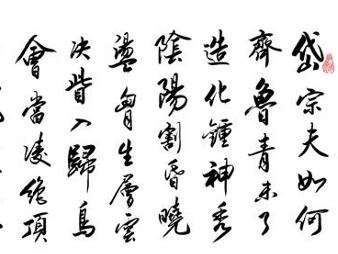 岱宗夫如何
齊魯青未了
造化鍾神秀
陰陽割昏曉
盪胷生層雲
决眥入歸鳥
會當凌絶頂